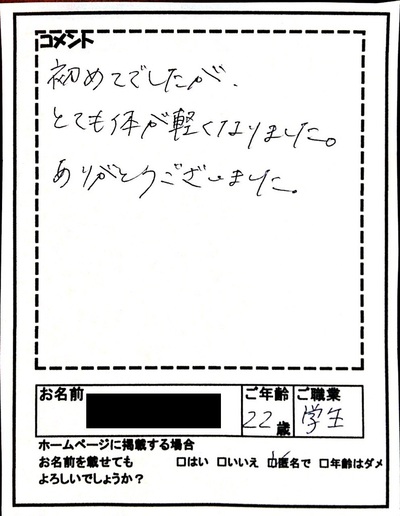 コメント
初めてでしたが、
とても体が軽くなりました。
ありがとうございました。
お名前 ご年齢 ご職業
22歳 学生
ホームページに掲載する場合
お名前を載せても □はい □いいえ ☑匿名で □年齢はダメ
よろしいでしょうか？